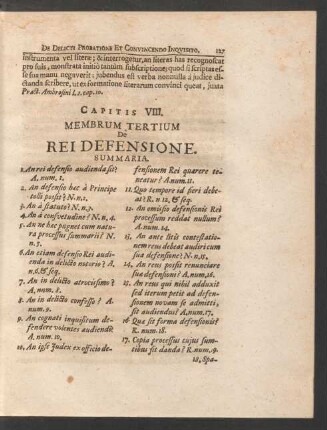 De Delicti Probatione Et Convincendo Inquisito. 127
instrumenta vel litteræ; & interrogetur, an literas has recognoscat
pro suis, monstrata initio tantùm subscriptione; quod si scriptas es-
se suâ manu negaverit: jubendus est verba nonnulla à judice di-
ctanda scribere, ut ex formatione literarum convinci queat, juxta
Pract. Ambrosini L. 2. cap. 10.
CAPITIS VIII.
MEMBRUM TERTIUM
De
REI DEFENSIONE.
SUMMARIA.
1. An rei defensio audienda sit?
A. num. 1.
2. An defensio hæc à Principe
tolli possit? N. n. 2.
3. An à statuto? N. n. 3.
4. An à consvetudine? N. n. 4.
5. An ne hæc pugnet cum natu-
ra processus summarii? N.
n. 5.
6. An etiam defensio Rei audi-
enda in delicto notorio? A.
n. 6. & seq.
7. An in delicto atrocissimo?
A. num. 8.
8. An in delicto confesso? A.
num. 9.
9. An cognati inquisitum de-
fendere volentes audiendi?
A. num. 10.
10. An ipse Judex ex officio de-
fensionem Rei quærere te-
neatur? A. num. 11.
11. Quo tempore id fieri debe-
at? R. n. 12. & seq.
12. An omissio defensionis Rei
processum reddat nullum?
A. num. 14.
13. An ante litis contestatio-
nem reus debeat audiri cum
sua defensione? N. n. 15.
14. An reus possit renunciare
suæ defensioni? A. num. 16.
15. An reus qui nihil adduxit
sed iterum petit ad defensi-
onem novam se admitti,
sit audiendus? A. num. 17.
16. Quæ sit forma defensionis?
R. num. 18.
17. Copia processus cujus sum-
tibus sit danda? R. num. 19.
18. Spa-